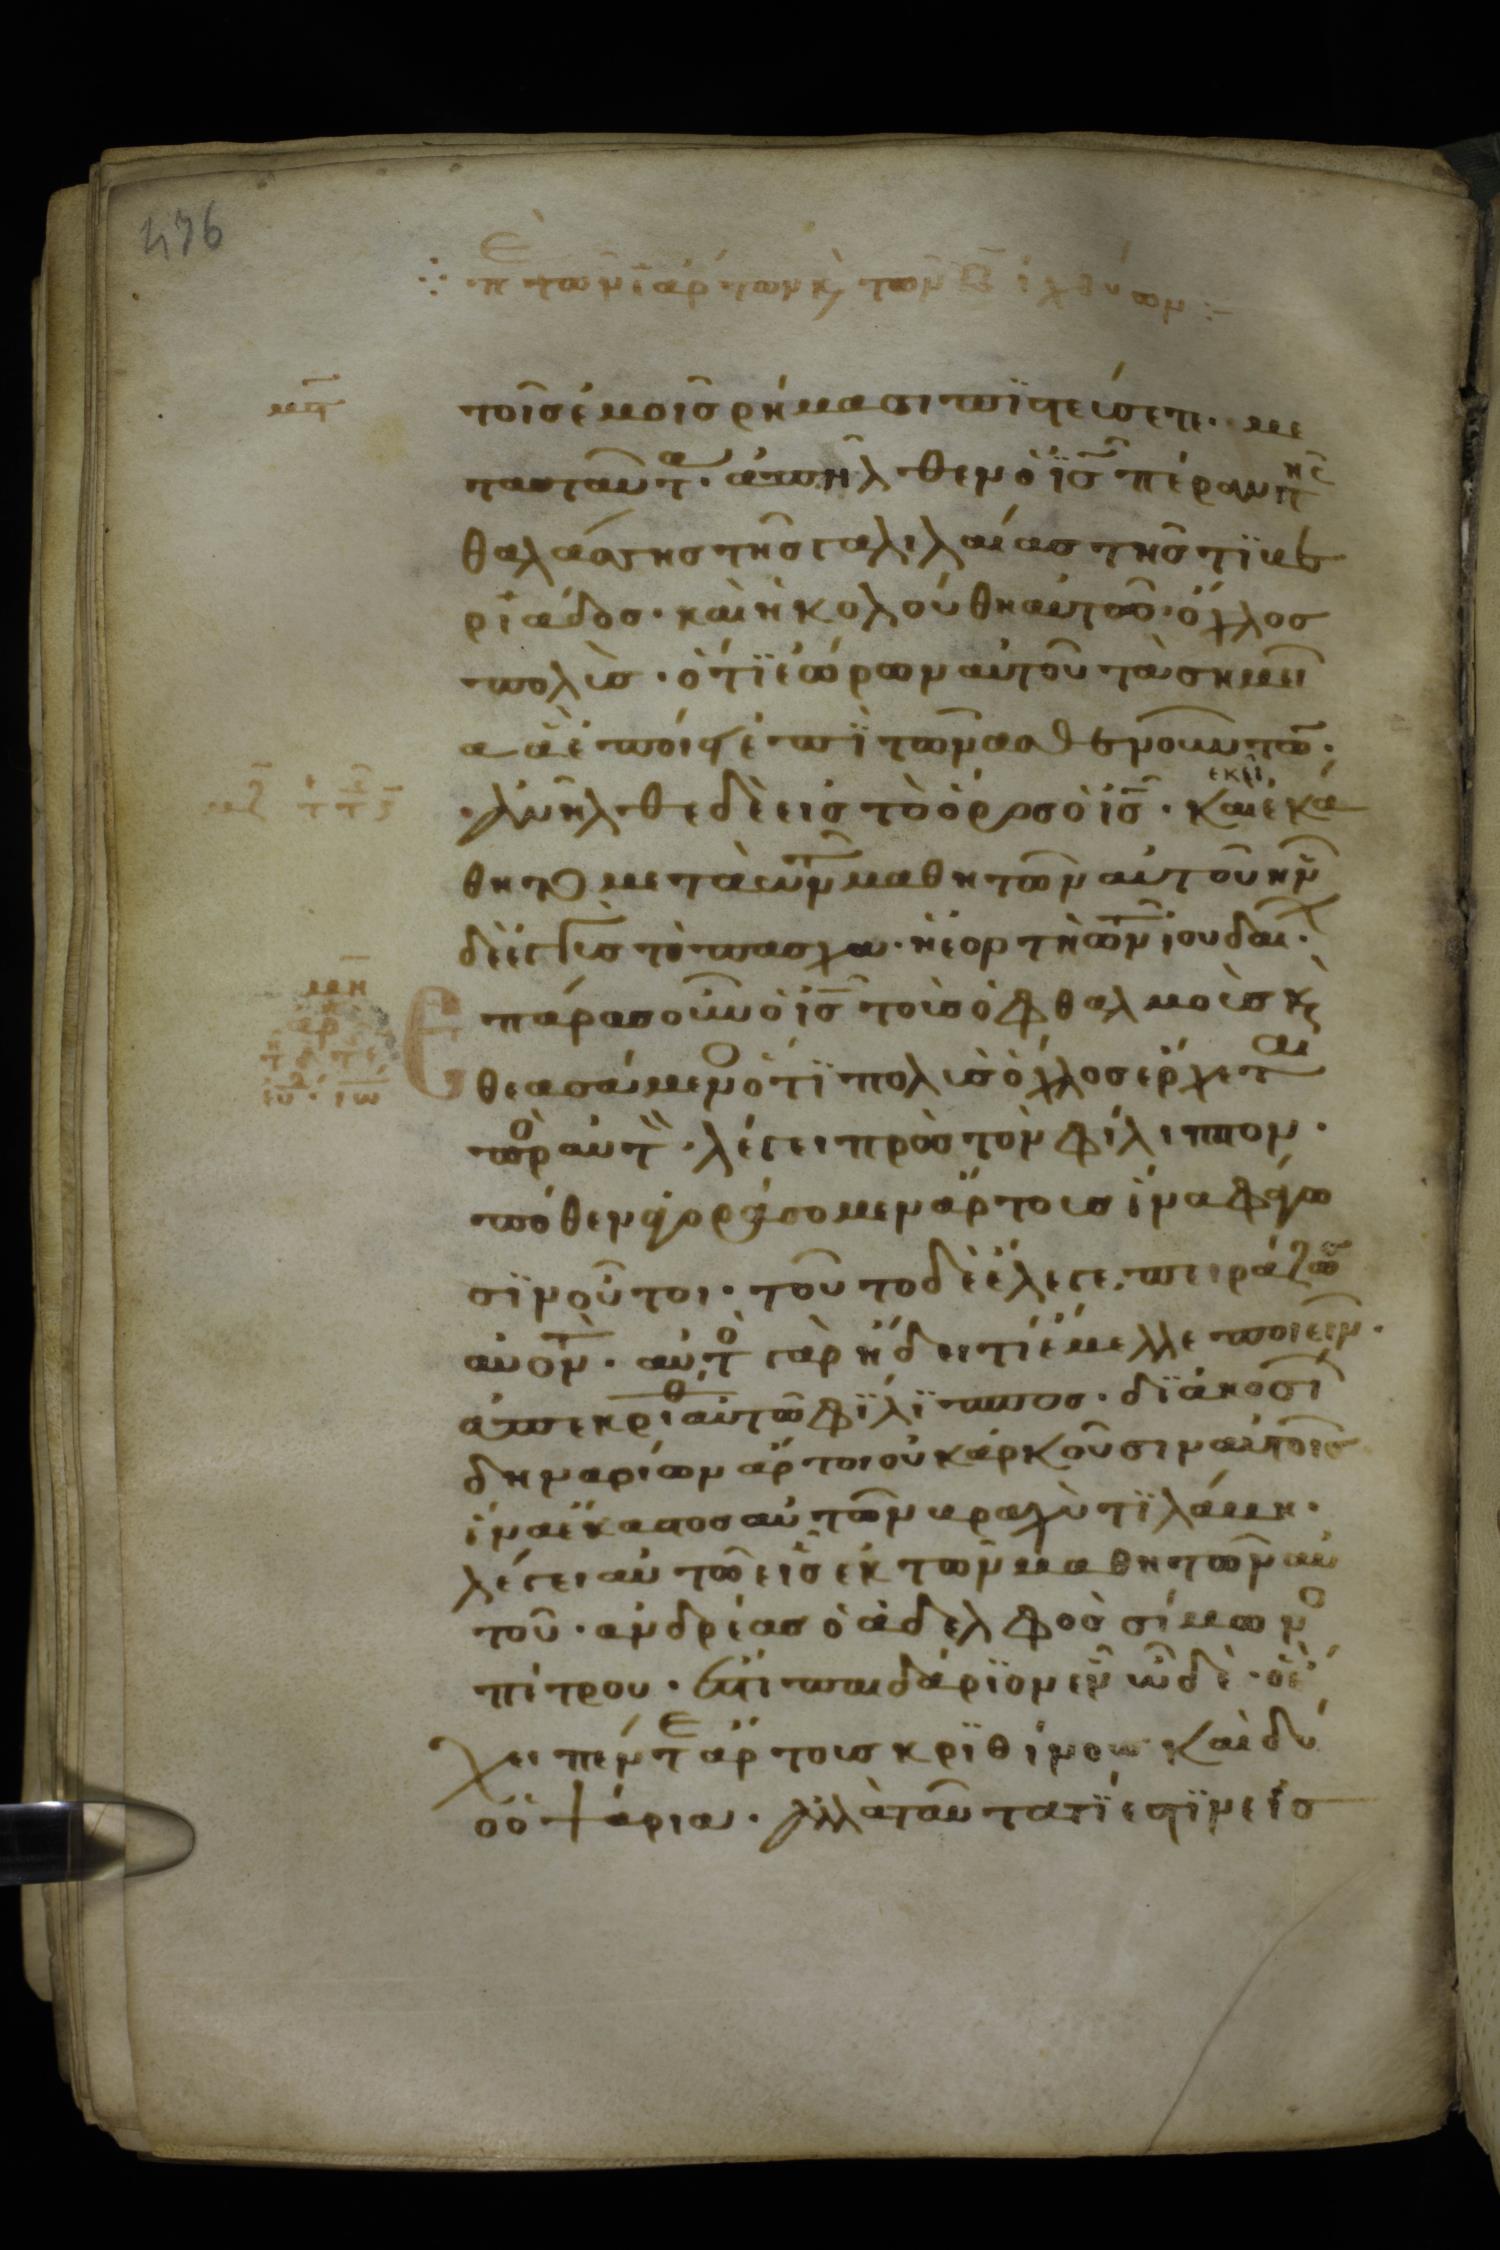 476
πε τῶν ε ἀρτων κ τῶν β ἰχθύων
τοῖς ἐμοῖς ρήμασι πϊστεύσετε· με
τὰ ταῦτα· ἀπῆλθεν ὁ ϊς πέραν της
θαλάσσης τῆς γαλιλαίας τῆς τϊβε
ριάδος· καὶ ἠκολούθη αὐτῶ· ὄχλος
πολὺς· ὅτϊ ἑώρων αὐτοῦ τὰ σημεῖ
α ἃ ἐποίει ἐπϊ τῶν ασθενούντω·
ἀνῆλθε δὲ εἰς τὸ ὄρος ὁ ἰς· καὶ ἐκεῖ ἐκά
θητο μετὰ τῶν μαθητῶν αὐτοῦ ἦν
δὲ ἐγγὺς τὸ πασχα· ἡ ἑορτὴ τῶν ἰουδαι·
μη
Ἐπάρας οὖν ὁ ἰς τοὺς ὀφθαλμοὺς κ
θεασάμενο ὅτϊ πολὺς ὄχλος ἔρχεται
πρὸ αὐτ· λέγει πρὸς τὸν φίλιππον·
πόθεν ἀγοράσομεν ἄρτους ἵνα φάγω
σϊν οὗτοι· τοῦτο δὲ ἔλεγε πειράζω
αὐτὸν· αὐτὸ γὰρ ἤδει τί ἔμελλε ποιεῖν·
ἀπεκρίθ αὐτῶ φϊλϊππος· δϊακοσί
δηναρίων ἄρτοι οὐκ ἀρκοῦσιν αὐτοῖς
ἵνα ἕκαστος αὐτῶν βραχὺ τϊ λάβη·
λέγει αὐτῶ εἷς ἐκ τῶν μαθητῶν αὐ
τοῦ· ανδρέας ὁ ἀδελφὸς σίμωνο
πέτρου· ἔστι παιδάρϊον ἓν ὧδὲ· ὃ ἔ
χει πέντε ἄρτους κρϊθίνους καὶ δύ
ο ὀψάρια· ἀλλὰ ταῦτα τϊ ἐστϊν εἰς